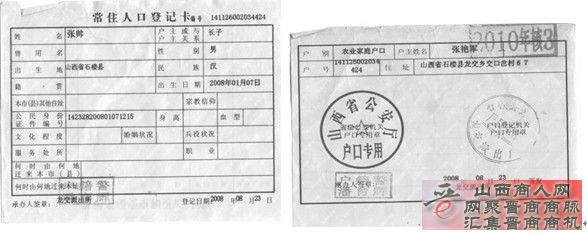 常住人口登记卡 编号 141126002034424
姓名 张帅 户主或与户主关系 长子
曾用名 性别 男
出生地 山西省石楼县 民族 汉
籍贯 出生日期 2008年01月07日
本市(县)其他住址 宗教信仰
公民身份证件编号 142328200801071215 身高 血型
文化程度 婚姻状况 兵役状况
服务处所 职业
何时由何地迁来本市(县)
何时何地迁来本址
承办人签章: 龙交派出所 登记日期 2008 年 08 月 23 日
2010年核3
户别 农业家庭户口 户主姓名 张艳军
户号 141126002034424 住址 山西省石楼县龙交乡交口岔村67
山西省公安厅
户口专用
户口登记机关
户口专用章
承办人签章:
龙交派 2008 年 08 月 23
山西商人网
网聚晋商商脉
汇集晋商商机